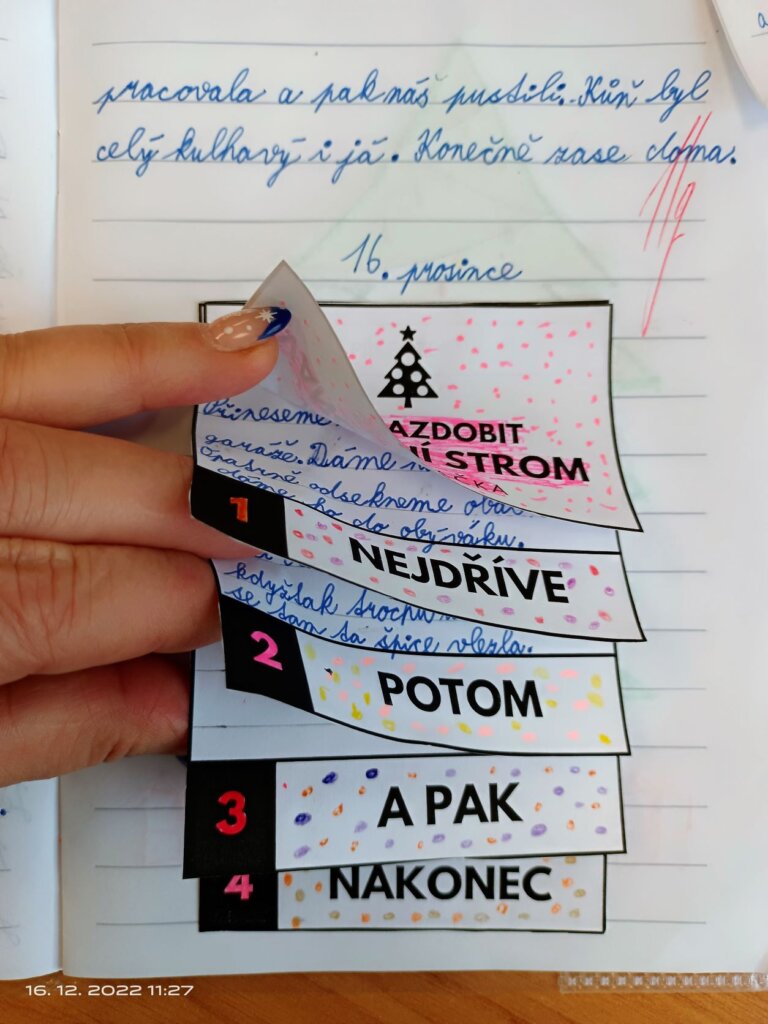 pracovala a pak náš pustili. Kůň byl
celý kulhavý i já. Konečně zase doma.
16. prosince
AZDOBIT
Í STROM
ČKA
Přineseme
garáže. Dáme
odsekneme
dáme ho do obýváku.
1 NEJDŘÍVE
kdyžtak trochu
se tam ta špice vlezla.
2 POTOM
3 A PAK
4 NAKONEC
16. 12. 2022 11:27